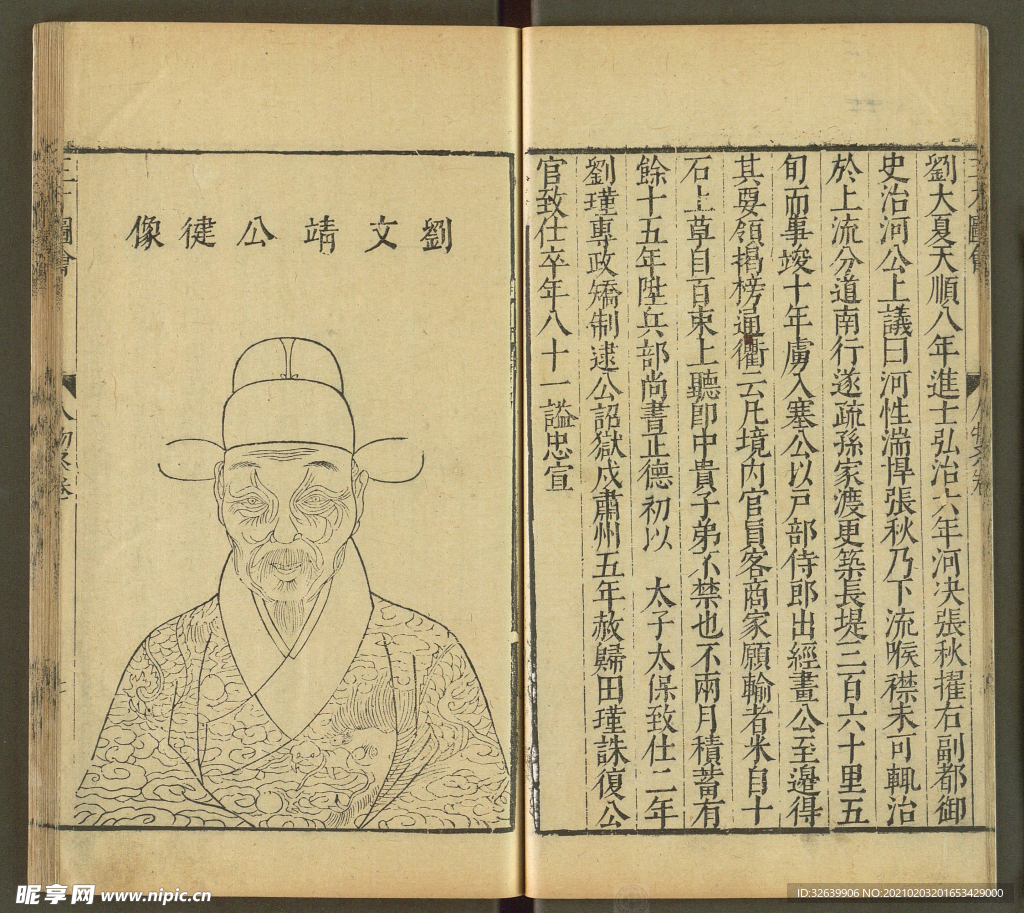 劉大夏天順八年進士弘治六年河決張秋擢右副都御
史治河公上議曰河性湍悍張秋乃下流喉襟未可輒治
於上流分道南行遂疏孫家渡更築長堤三百六十里五
旬而事竣十年虜入塞公以戶部侍郎出經畫公至邊得
其要領揭榜通衢云凡境內官員客商家願輸者米自十
石上草自百束上聽即中貴子弟不禁也不兩月積蓄有
餘十五年陞兵部尚書正德初以 太子太保致仕二年
劉瑾專政矯制逮公詔獄戍肅州五年赦歸田瑾誅復公
官致仕卒年八十一謚忠宣
劉文靖公健像
昵享网 www.nipic.cn
ID:32639906 NO:20210203201653429000